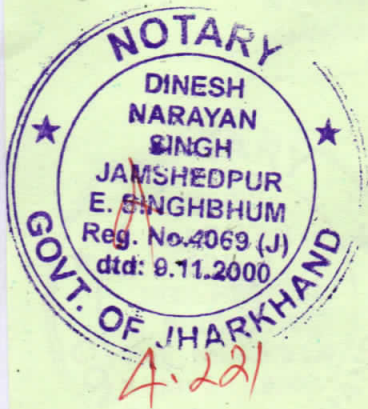 NOTARY
DINESH
NARAYAN
SINGH
JAMSHEDPUR
E. SINGHBHUM
Reg. No.4069 (J)
dtd: 9.11.2000
GOVT. OF JHARKHAND